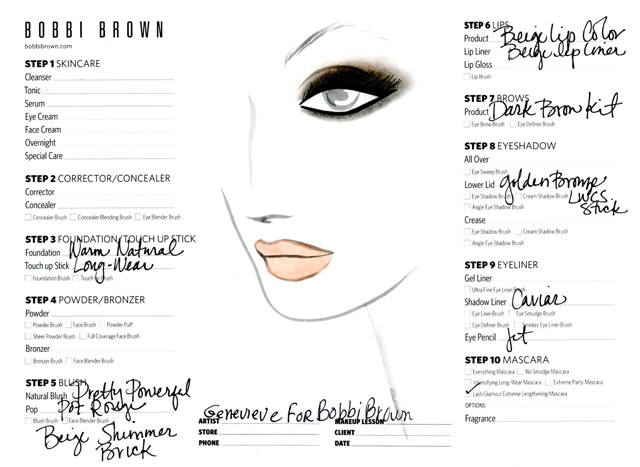 BOBBI BROWN
bobbibrown.com
STEP 1 SKINCARE
Cleanser
Tonic
Serum
Eye Cream
Face Cream
Overnight
Special Care
STEP 2 CORRECTOR/CONCEALER
Corrector
Concealer
Concealer Brush Concealer Blending Brush Eye Blender Brush
STEP 3 FOUNDATION/TOUCH UP STICK
Foundation Warm Natural
Touch up Stick Long-Wear
Foundation Brush Touch up Brush
STEP 4 POWDER/BRONZER
Powder
Powder Brush Face Brush Powder Puff
Sheer Powder Brush Full Coverage Face Brush
Bronzer
Bronzer Brush Face Blender Brush
STEP 5 BLUSH
Natural Blush Pretty Powerful
Pop Pot Rouge
Blush Brush Face Blender Brush
Beige Shimmer
Brick
Genevieve For Bobbi Brown
ARTIST MAKEUP LESSON
STORE CLIENT
PHONE DATE
STEP 6 LIPS
Product Beige Lip Color
Lip Liner Beige Lip Liner
Lip Gloss
Lip Brush
STEP 7 BROWS
Product Dark Brow Kit
Eye Brow Brush Eye Definer Brush
STEP 8 EYESHADOW
All Over
Eye Sweep Brush
Lower Lid Golden Bronze
Eye Shadow Brush Cream Shadow Brush LWCS
Angle Eye Shadow Brush Stick
Crease
Eye Shadow Brush Cream Shadow Brush
Angle Eye Shadow Brush
STEP 9 EYELINER
Gel Liner
Ultra Fine Eye Liner Brush
Shadow Liner Caviar
Eye Liner Brush Eye Smudge Brush
Eye Definer Brush Smokey Eye Liner Brush
Eye Pencil Jet
STEP 10 MASCARA
Everything Mascara No Smudge Mascara
Intensifying Long-Wear Mascara Extreme Party Mascara
Lash Glamour Extreme Lengthening Mascara
OPTIONS
Fragrance